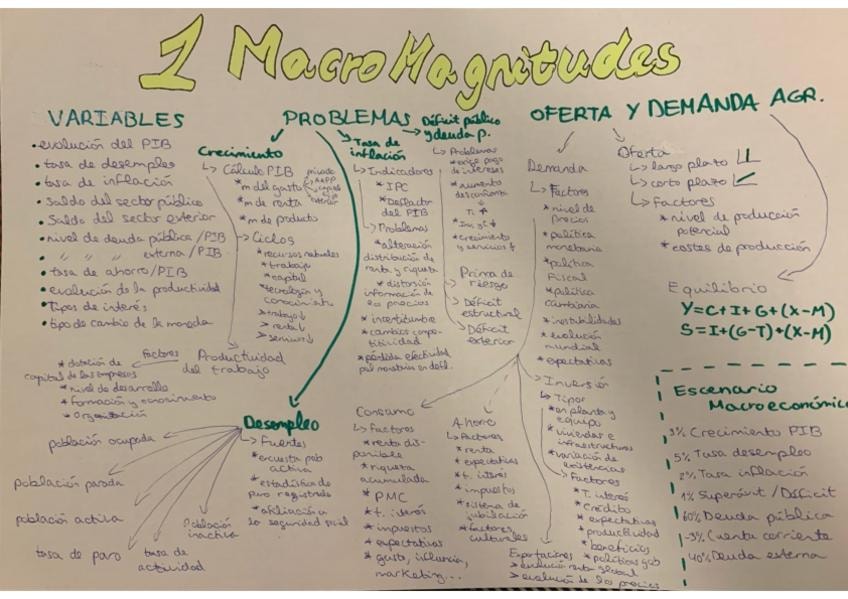 1 MacroMagnitudes
VARIABLES
• evolución del PIB
• tasa de desempleo
• tasa de inflación
• Saldo del sector público
• Saldo del sector exterior
• nivel de deuda pública/PIB
• " " " externa/PIB
• tasa de ahorro/PIB
• evolución de la productividad
• Tipos de interés
• tipo de cambio de la moneda
PROBLEMAS
Crecimiento
↳ Cálculo PIB
* m del gasto
privado
AAPP
exterior
* m de renta
* m de producto
↳ Ciclos
* recursos naturales
* trabajo
* capital
* tecnología y
conocimiento
> trabajo ↓
> renta ↓
> servicios ↓
Productividad
del trabajo
factores
* dotación de
capital de las empresas
* nivel de desarrollo
* formación y conocimiento
* organización
Tasa de
inflación
↳ Indicadores
* IPC
* Deflactor
del PIB
↳ Problemas
* alteración
distribución de
renta y riqueza
* distorsión
información de
los precios
* incertitumbre
* cambios compe-
titividad
* pérdida efectividad
pol monetaria en defl.
Déficit público
y deuda p.
↳ Problemas
* exige pago
de intereses
* aumento
desconfianza
↓
TI ↑
* Crecimiento
y servicios ↓
Prima de
riesgo
Déficit
estructural
Déficit
exterior
Desempleo
↳ Fuentes
* encuesta pob
activa
* estadística de
paro registrado
* afiliación a
la seguridad social
población ocupada
población parada
población activa
Población
inactiva
tasa de paro
tasa de
actividad
OFERTA Y DEMANDA AGR.
Demanda
↳ Factores
* nivel de
precios
* política
monetaria
* política
Fiscal
* política
cambiaria
* inestabilidades
* evolución
mundial
* expectativas
Consumo
↳ Factores
* renta dis-
ponible
* riqueza
acumulada
* PMC
* t. interés
* impuestos
* expectativas
* gusto, influencia,
marketing...
Ahorro
↳ Factores
* renta
* expectativas
* t. interés
* impuestos
* sistema de
jubilación
* factores
culturales
Inversión
↳ Tipos
* en planta y
equipo
* viviendas e
infraestructuras
* variación de
existencias
↳ Factores
* T. interés
* Crédito
* expectativas
* productividad
* beneficios
* políticas gob
Exportaciones
> evolución renta global
> evolución de los precios
Oferta
↳ largo plazo
↳ corto plazo
↳ Factores
* nivel de producción
potencial
* costes de producción
Equilibrio
Y=C+I+G+(X-M)
S=I+(G-T)+(X-M)
Escenario
Macroeconómico
3% Crecimiento PIB
5% Tasa desempleo
2% Tasa inflación
1% Superávit/Déficit
60% Deuda pública
-3% Cuenta corriente
40% Deuda externa